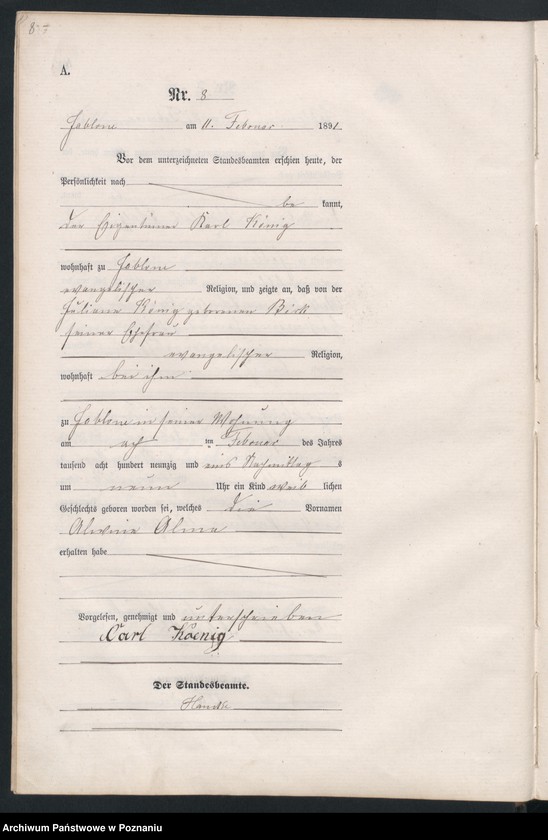 A.
Nr. 8
Jablone am 11. Februar 1891
Vor dem unterzeichneten Standesbeamten erschien heute, der
Persönlichkeit nach
be kannt,
der Eigenthümer Karl König
wohnhaft zu Jablone
evangelischer Religion, und zeigte an, daß von der
Juliane König geborenen
seiner Ehefrau
evangelischer Religion,
wohnhaft bei ihm
zu Jablone in seiner Wohnung
am ten Februar des Jahres
tausend acht hundert neunzig und eins Nachmittag s
um neun Uhr ein Kind weib lichen
Geschlechts geboren worden sei, welches die Vornamen
Alwine Alma
erhalten habe
Vorgelesen, genehmigt und unterschrieben
Carl Koenig
Der Standesbeamte.
Archiwum Państwowe w Poznaniu